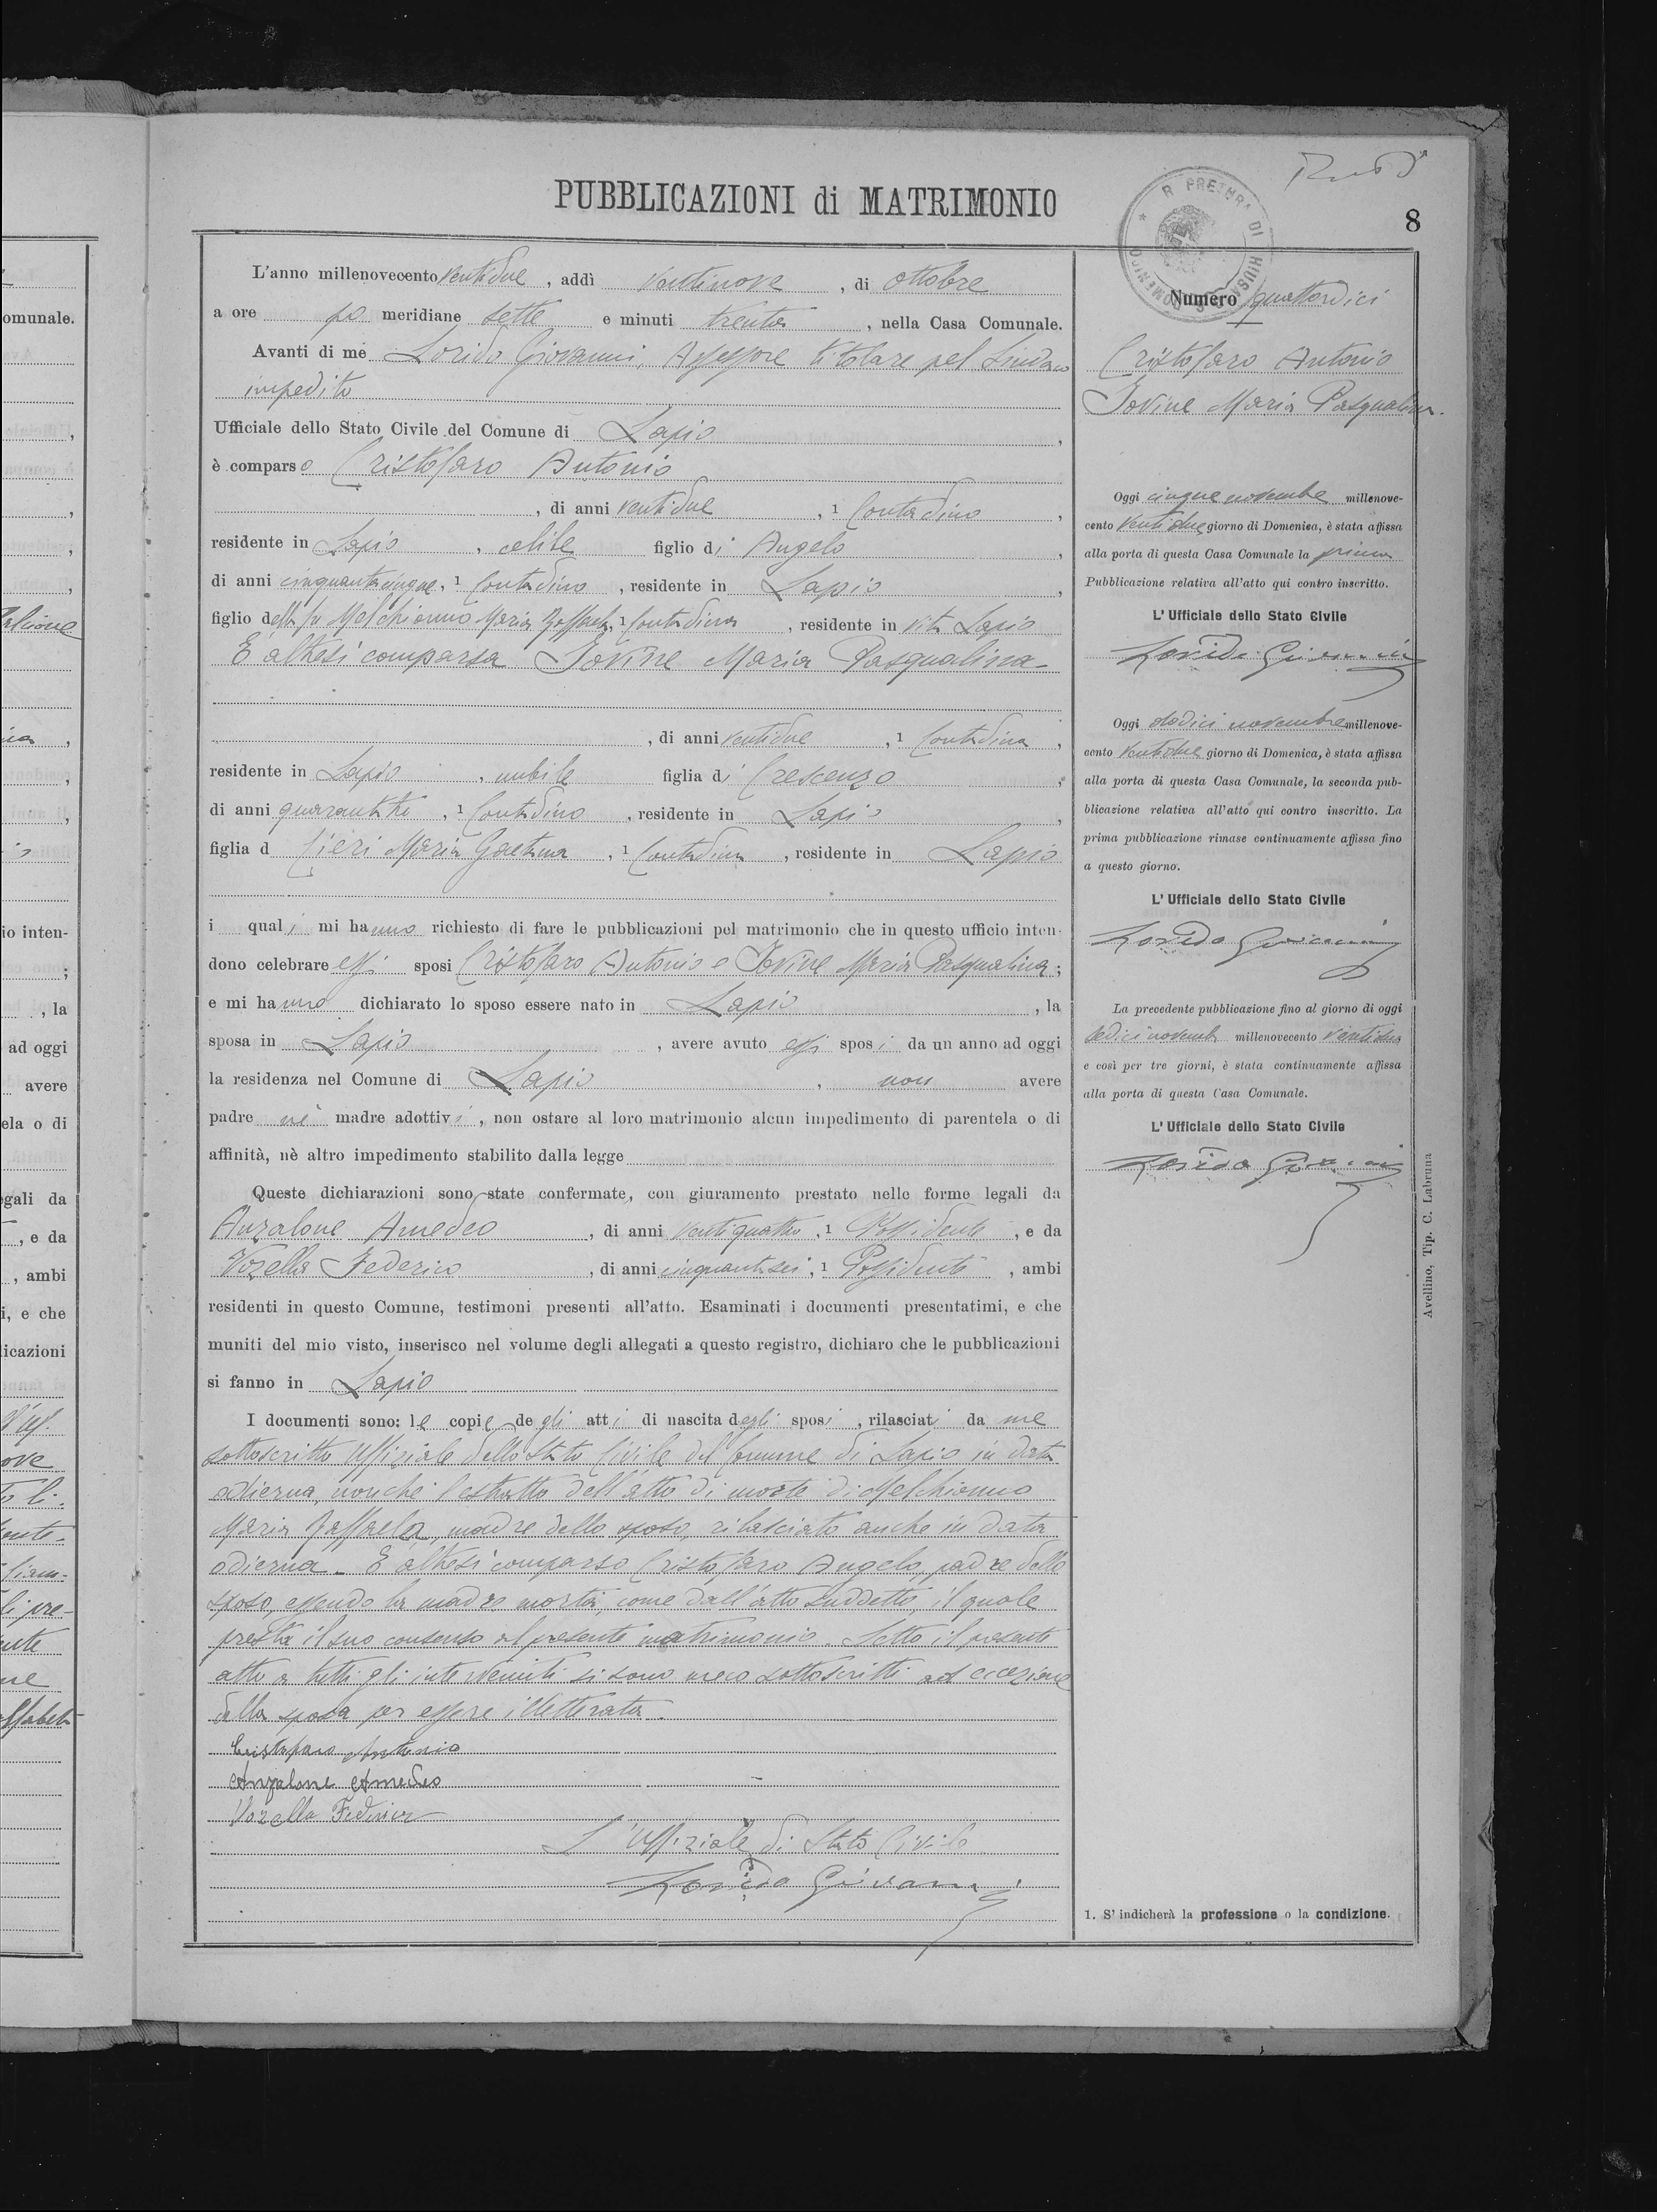 PUBBLICAZIONI di MATRIMONIO
R PRETURA DI CHIUSANO S. DOMENICO
8
L'anno millenovecento ventidue, addì ventinove, di ottobre
a ore po meridiane sette e minuti trenta, nella Casa Comunale.
Avanti di me Lorido Giovanni, Assessore titolare pel Sindaco
impedito
Ufficiale dello Stato Civile del Comune di Lapio,
è comparso Cristofaro Antonio
, di anni ventidue, 1 Contadino,
residente in Lapio, celibe figlio di Angelo,
di anni cinquantacinque, 1 Contadino, residente in Lapio,
figlio della fu Melchionno Maria Raffaela, 1 Contadina, residente in vita Lapio
È altresì comparsa Iovine Maria Pasqualina
, di anni ventidue, 1 Contadina,
residente in Lapio, nubile figlia di Crescenzo,
di anni quarantatre, 1 Contadino, residente in Lapio,
figlia d Cieri Maria Gaetana, 1 Contadina, residente in Lapio
i quali mi hanno richiesto di fare le pubblicazioni pel matrimonio che in questo ufficio inten-
dono celebrare essi sposi Cristofaro Antonio e Iovine Maria Pasqualina;
e mi hanno dichiarato lo sposo essere nato in Lapio, la
sposa in Lapio, avere avuto essi sposi da un anno ad oggi
la residenza nel Comune di Lapio, non avere
padre nè madre adottivi, non ostare al loro matrimonio alcun impedimento di parentela o di
affinità, nè altro impedimento stabilito dalla legge
Queste dichiarazioni sono state confermate, con giuramento prestato nelle forme legali da
Anzalone Amedeo, di anni ventiquattro, 1 Possidente, e da
Vozella Federico, di anni cinquantasei, 1 Possidente, ambi
residenti in questo Comune, testimoni presenti all'atto. Esaminati i documenti presentatimi, e che
muniti del mio visto, inserisco nel volume degli allegati a questo registro, dichiaro che le pubblicazioni
si fanno in Lapio
I documenti sono: le copie degli atti di nascita degli sposi, rilasciati da me
sottoscritto Uffiziale dello Stato Civile del Comune di Lapio in data
odierna, nonché l'estratto dell'atto di morte di Melchionno
Maria Raffaela, madre dello sposo, rilasciato anche in data
odierna. È altresì comparso Cristofaro Angelo, padre dello
sposo, essendo la madre morta, come dall'atto suddetto, il quale
presta il suo consenso al presente matrimonio. Letto il presente
atto a tutti gli intervenuti si sono meco sottoscritti ad eccezione
della sposa per essere illetterata.
Cristofaro Antonio
Anzalone Amedeo
Vozella Federico
L'Uffiziale di Stato Civile
Lorido Giovanni
Numero quattordici
Cristofaro Antonio
Iovine Maria Pasqualina.
Oggi cinque novembre millenove-
cento ventidue giorno di Domenica, è stata affissa
alla porta di questa Casa Comunale la prima
Pubblicazione relativa all'atto qui contro inscritto.
L'Ufficiale dello Stato Civile
Lorido Giovanni
Oggi dodici novembre millenove-
cento ventidue giorno di Domenica, è stata affissa
alla porta di questa Casa Comunale, la seconda pub-
blicazione relativa all'atto qui contro inscritto. La
prima pubblicazione rimase continuamente affissa fino
a questo giorno.
L'Ufficiale dello Stato Civile
Lorido Giovanni
La precedente pubblicazione fino al giorno di oggi
sedici novembre millenovecento ventidue
e così per tre giorni, è stata continuamente affissa
alla porta di questa Casa Comunale.
L'Ufficiale dello Stato Civile
Lorido Giovanni
1. S'indicherà la professione o la condizione.
Avellino, Tip. C. Labruna
omunale.
io inten-
, la
ad oggi
avere
ela o di
egali da
, e da
, ambi
i, e che
licazioni